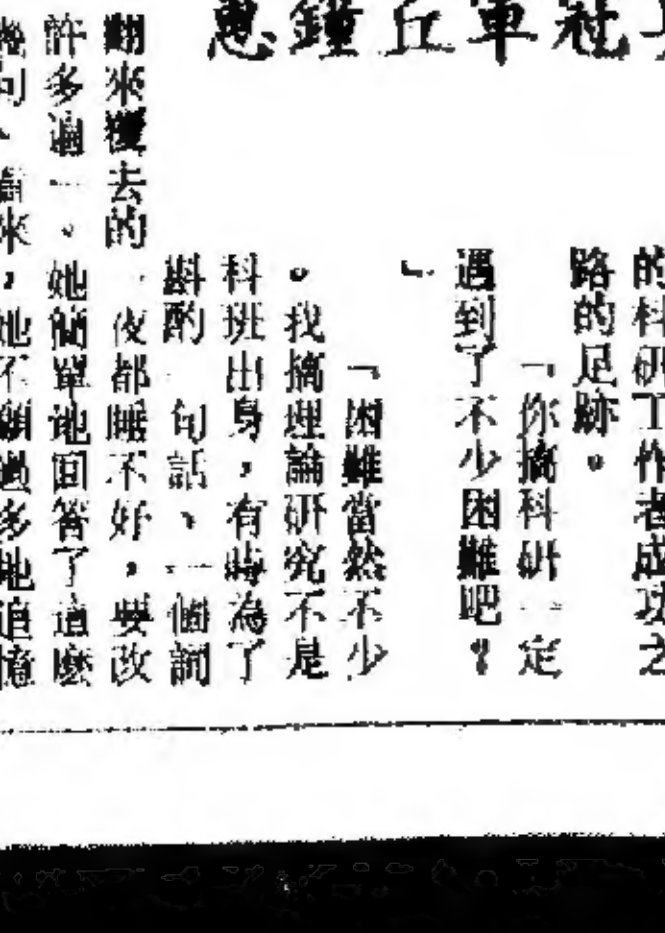 冠軍丘鐘惠
的科研工作者成功之
路的足跡。
「你搞科研一定
遇到了不少困難吧？
」
「困難當然不少
。我搞理論研究不是
科班出身，有時為了
斟酌一句話、一個詞
翻來覆去的一夜都睡不好，要改
許多遍一。她簡單地回答了這麼
幾句、看來，她不願過多地追憶